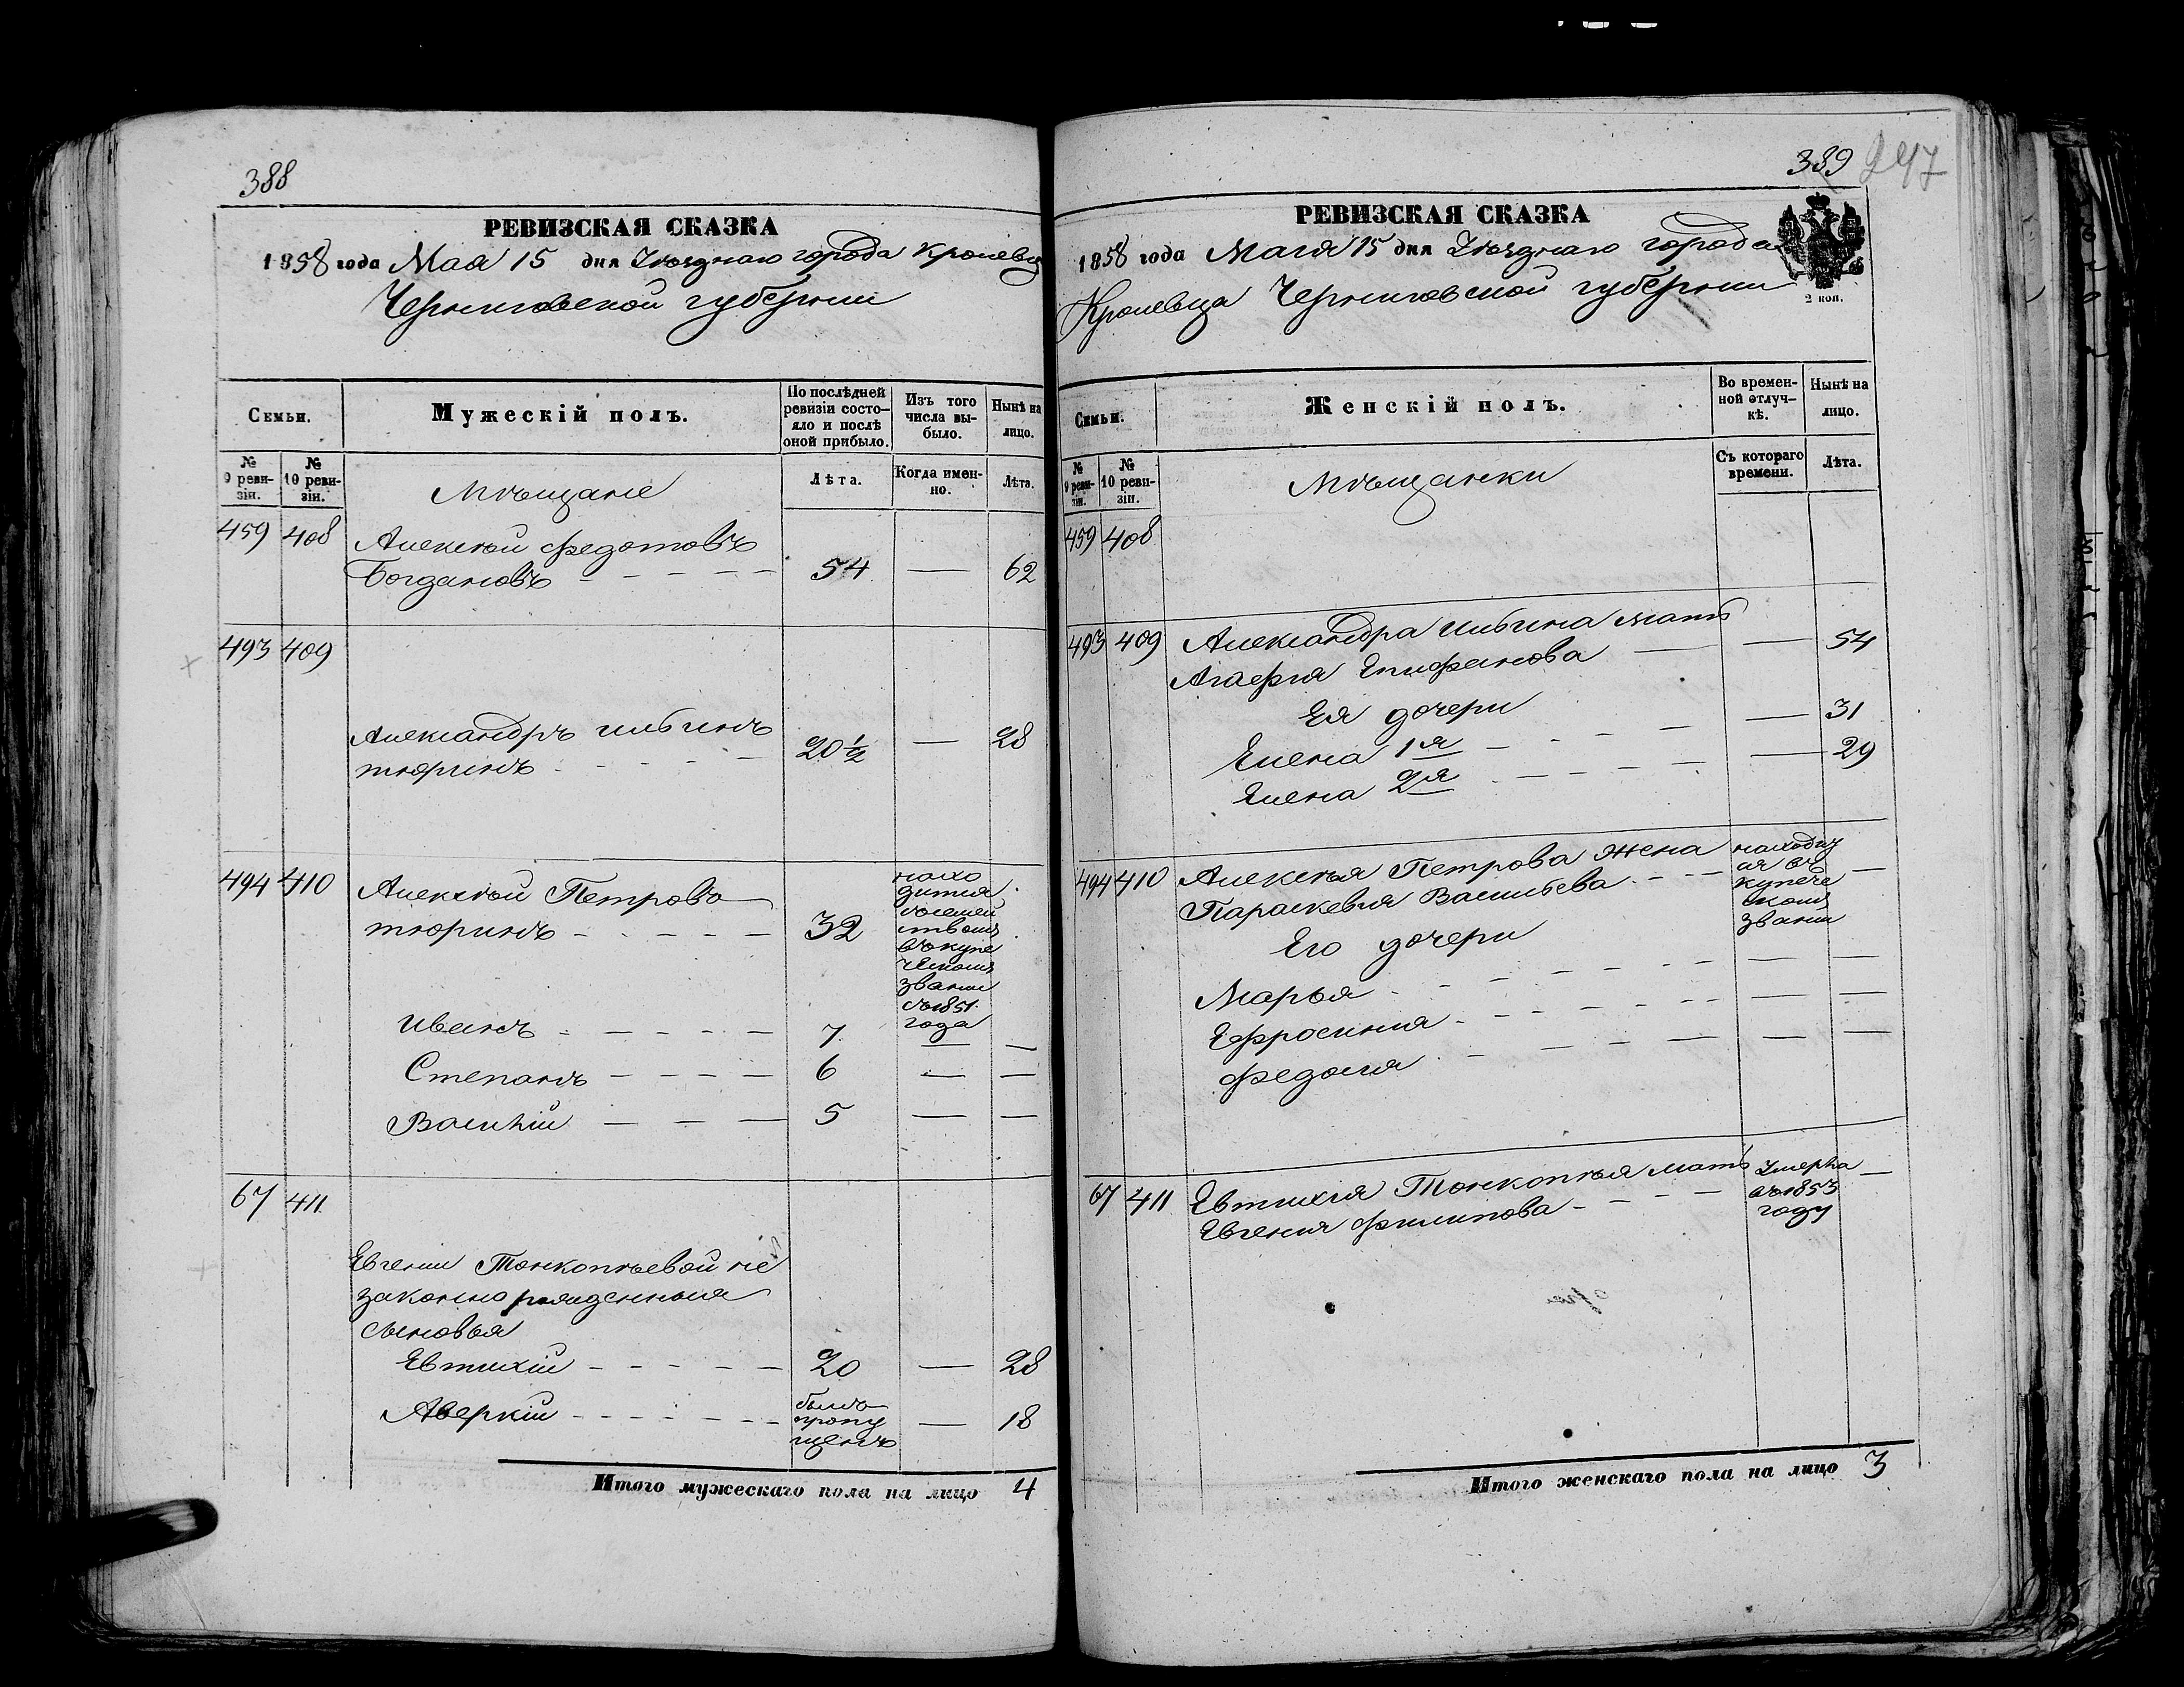 388
РЕВИЗСКАЯ СКАЗКА
1858 года Мая 15 дня Уѣзднаго города Кролевца
Черниговской губерніи
Семьи.
Мужескій полъ.
По послѣдней ревизіи состояло и послѣ оной прибыло.
Изъ того числа выбыло.
Нынѣ на лицо.
№ 9 ревизіи.
№ 10 ревизіи.
Мѣщане
Лѣта.
Когда именно.
Лѣта.
459 408 Алексѣй Федотовъ
Богдановъ 54 — 62
493 409
Александръ Ильинъ
Тюринъ 20½ — 28
494 410 Алексѣй Петровъ
Тюринъ 32
нахо
дится
съ семей
ствомъ
въ купе
ческомъ
званіи
съ 1851
года
Иванъ 7 — —
Степанъ 6 — —
Василій 5 — —
67 411
Евгеніи Тонкопѣевой не
законно рожденныя
сыновья
Евтихій 20 — 28
Аверкій
былъ
пропу
щенъ
— 18
Итого мужескаго пола на лицо 4
389 247
РЕВИЗСКАЯ СКАЗКА
1858 года Мая 15 дня Уѣзднаго города
Кролевца Черниговской губерніи
2 коп.
Семьи.
Женскій полъ.
Во временной отлучкѣ.
Нынѣ на лицо.
№ 9 ревизіи.
№ 10 ревизіи.
Мѣщанки
Съ котораго времени.
Лѣта.
459 408
493 409 Александра Ильина мать
Агафія Епифанова — 54
Ея дочери
Елена 1я — 31
Елена 2я — 29
494 410 Алексѣя Петрова жена
Параскевія Васильева
находит
ся въ
купече
скомъ
званіи
—
Его дочери
Марья — —
Ефросинія — —
Федосія — —
67 411 Евтихія Тонкопѣя мать
Евгенія Филипова
Умерла
въ 1853
году
—
Итого женскаго пола на лицо 3